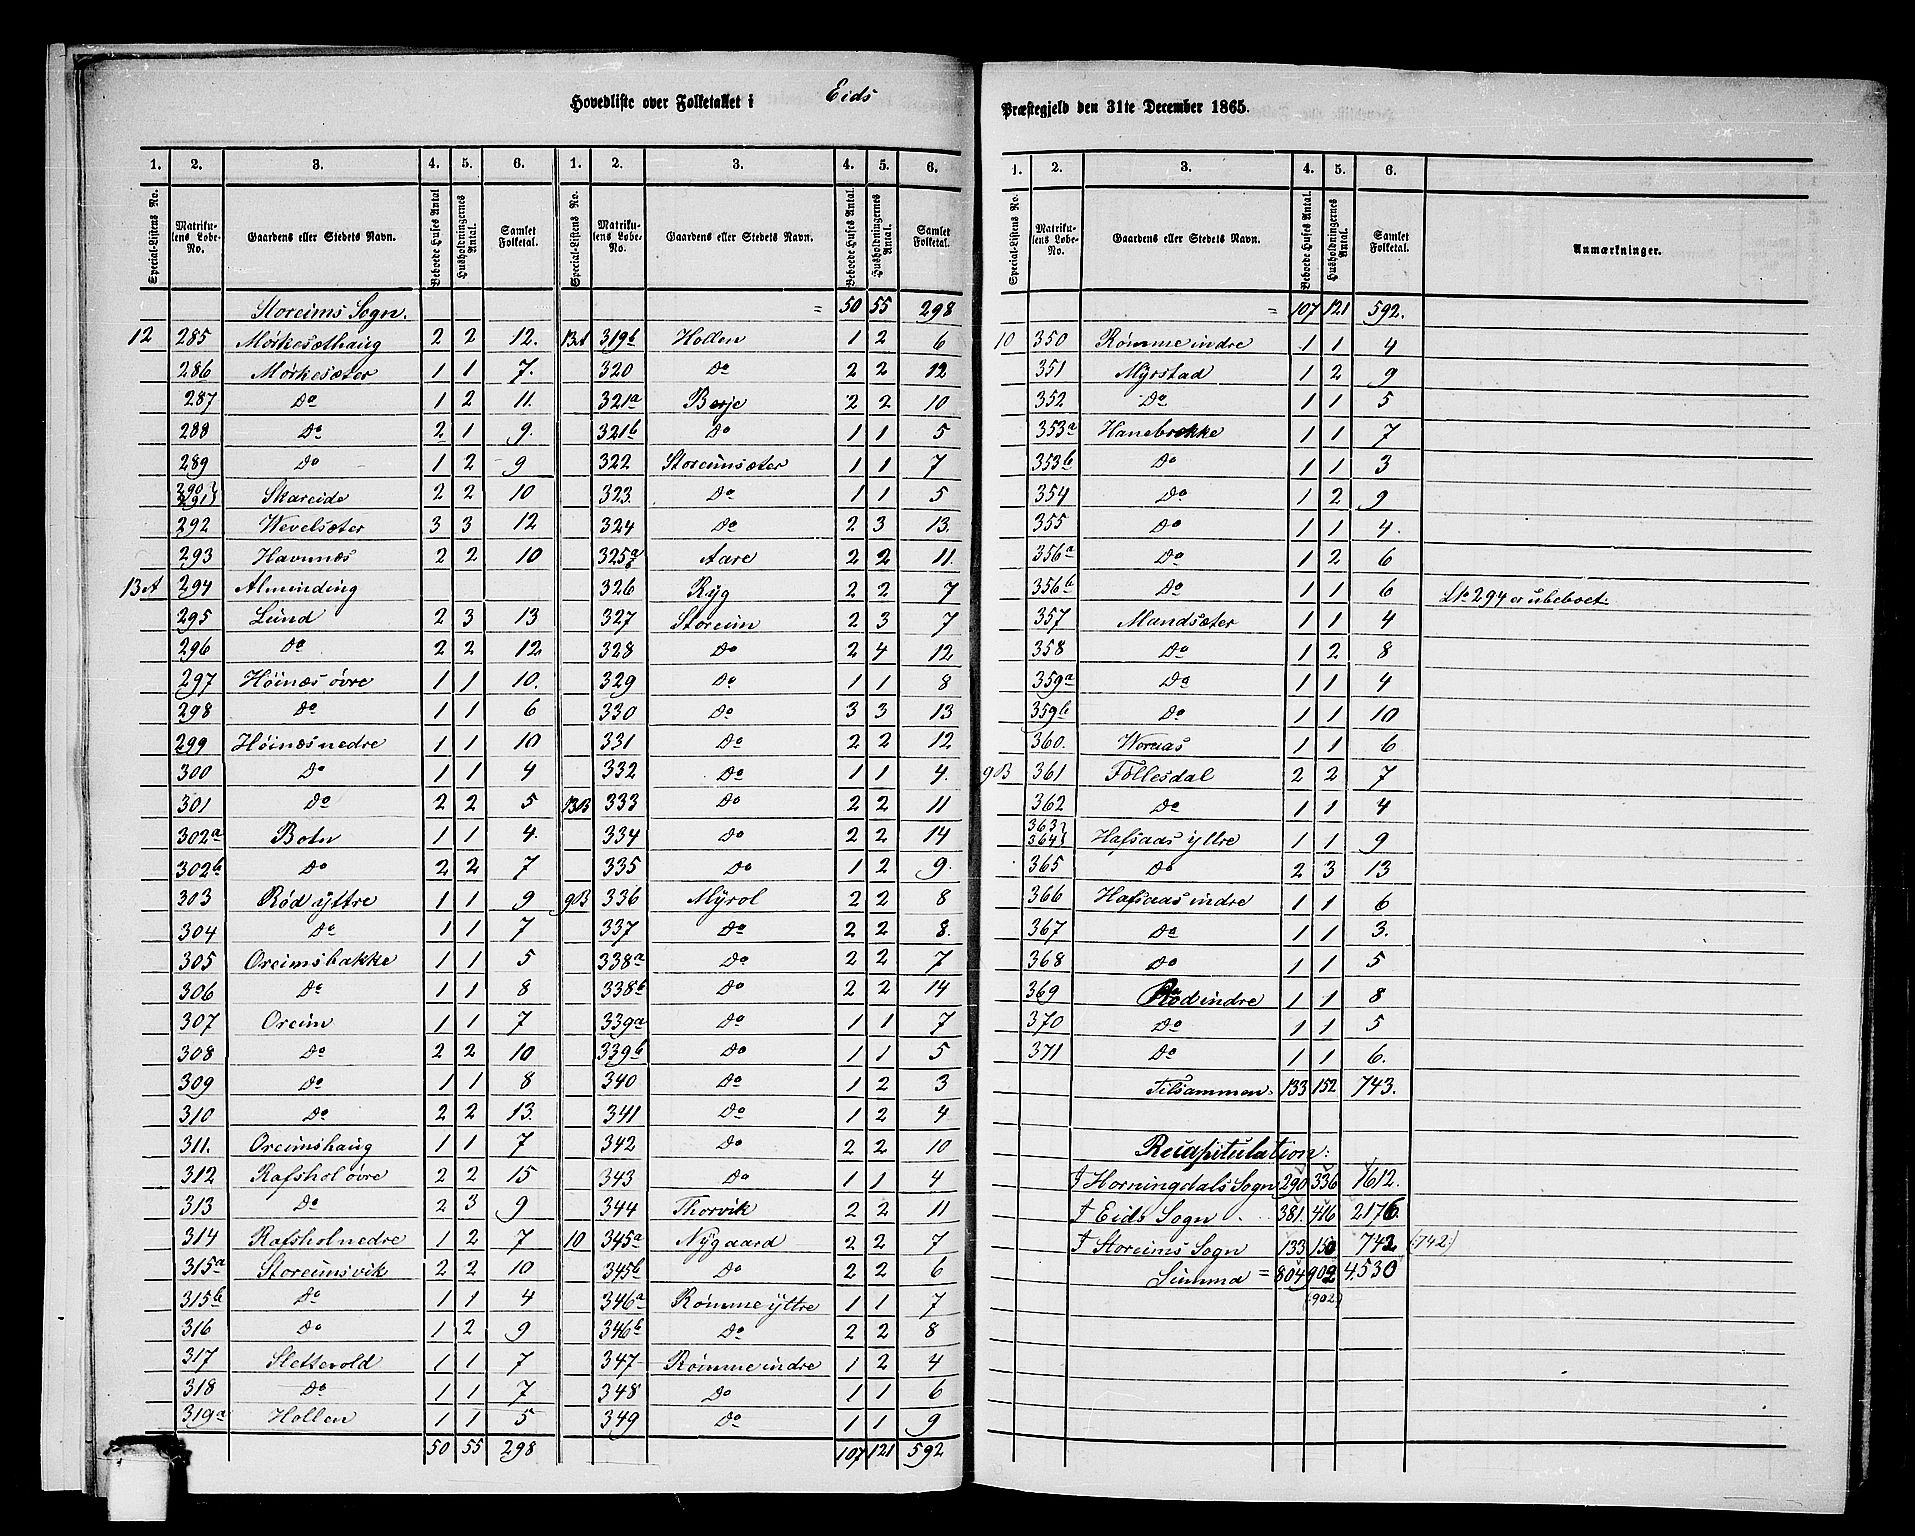 Hovedliste over Folketallet i Eids
Præstegjeld den 31te December 1865.
1. 2. 3. 4. 5. 6. 1. 2. 3. 4. 5. 6.
Special-Listens No. Matrikulens Løbe-No. Gaardens eller Stedets Navn. Beboede Huses Antal Husholdningernes Antal. Samlet Folketal. Special-Listens No. Matrikulens Løbe-No. Gaardens eller Stedets Navn. Beboede Huses Antal. Husholdningernes Antal. Samlet Folketal.
Storeims Sogn.
12 285 Mørkesæthaug 2 2 12.
286 Mørkesæter 1 1 7.
287 Do 1 2 11.
288 Do 2 1 9.
289 Do 1 2 9
290} 291} Skareide 2 2 10
292 Wevelsæter 3 3 12
293 Havnnæs 2 2 10
13A 294 Alminding
295 Lund 2 3 13
296 Do 2 2 12
297 Høinæs øvre 1 1 10.
298 Do 1 1 6
299 Høinæs nedre 1 1 10
300 Do 1 1 4
301 Do 2 2 5
302a Botn 1 1 4.
302b Do 2 2 7
303 Rød yttre 1 1 9
304 Do 1 1 7
305 Oreimsbakke 1 1 5
306 Do 1 1 8
307 Oreim 1 1 7
308 Do 2 2 10
309 Do 1 1 8
310 Do 2 2 13.
311. Oreimshaug 1 1 7
312 Rafshol øvre 2 2 15
313 Do 2 3 9
314 Rafshol nedre 1 2 7
315a Storeimsvik 2 2 10
315b Do 1 1 4
316 Do 1 2 9
317 Slettevold 1 1 7
318 Do 1 1 7
319a Hollen 1 1 5
50 55 298
= 50 55 298
13A 319b Hollen 1 2 6
320 Do 2 2 12
321a Berje 2 2 10
321b Do 1 1 5
322 Storeimsæter 1 1 7
323 Do 1 1 5
324 Do 2 3 13.
325a Aare 2 2 11.
326 Ryg 2 2 7
327 Storeim 2 3 7
328 Do 2 4 12
329 Do 1 1 8
330 Do 3 3 13
331 Do 2 2 12
332 Do 1 1 4.
13B 333 Do 2 2 11
334 Do 2 2 14
335 Do 1 2 9.
9B 336 Myrol 2 2 8
337 Do 2 2 8.
338a Do 2 2 7
338b Do 2 2 14
339a Do 1 1 7
339b Do 1 1 5
340 Do 1 2 3
341 Do 1 2 4
342 Do 2 2 10
343 Do 1 1 4
344 Thorvik 2 2 11
10 345a Nygaard 2 2 7
345b Do 2 2 6
346a Rømme yttre 1 1 7
346b Do 2 2 8
347 Rømme indre 1 2 4
348 Do 1 1 6
349 Do 1 1 9
107 121 592
1. 2. 3. 4. 5. 6.
Special-Listens No. Matrikulens Løbe-No. Gaardens eller Stedets Navn. Beboede Huses Antal. Husholdningernes Antal. Samlet Folketal. Anmærkninger.
= 107 121 592.
10 350 Rømme indre 1 1 4
351 Myrstad 1 2 9
352 Do 1 1 5
353a Hanebrekke 1 1 7
353b Do 1 1 3
354 Do 1 2 9
355 Do 1 1 4.
356a Do 1 2 6
356b Do 1 1 6 LNo 294 er ubeboet.
357 Mandsæter 1 1 4
358 Do 1 2 8
359a Do 1 1 4
359b Do 1 1 10
360. Woraas 1 1 6
9B 361 Follesdal 2 2 7
362 Do 1 1 4
363} 364} Hafsaas yttre 1 1 9
365 Do 2 3 13
366 Hafsaas indre 1 1 6
367 Do 1 1 3.
368 Do 1 1 5
369 Rød indre 1 1 8
370 Do 1 1 5
371 Do 1 1 6.
Tilsammen. 133 152 743.
Recapitulation:
Horningdals Sogn 290 336 1612.
Eids Sogn. 381. 416 2176.
Storeims Sogn 133 150 742 (742)
Summa = 804 902 4530
(902)